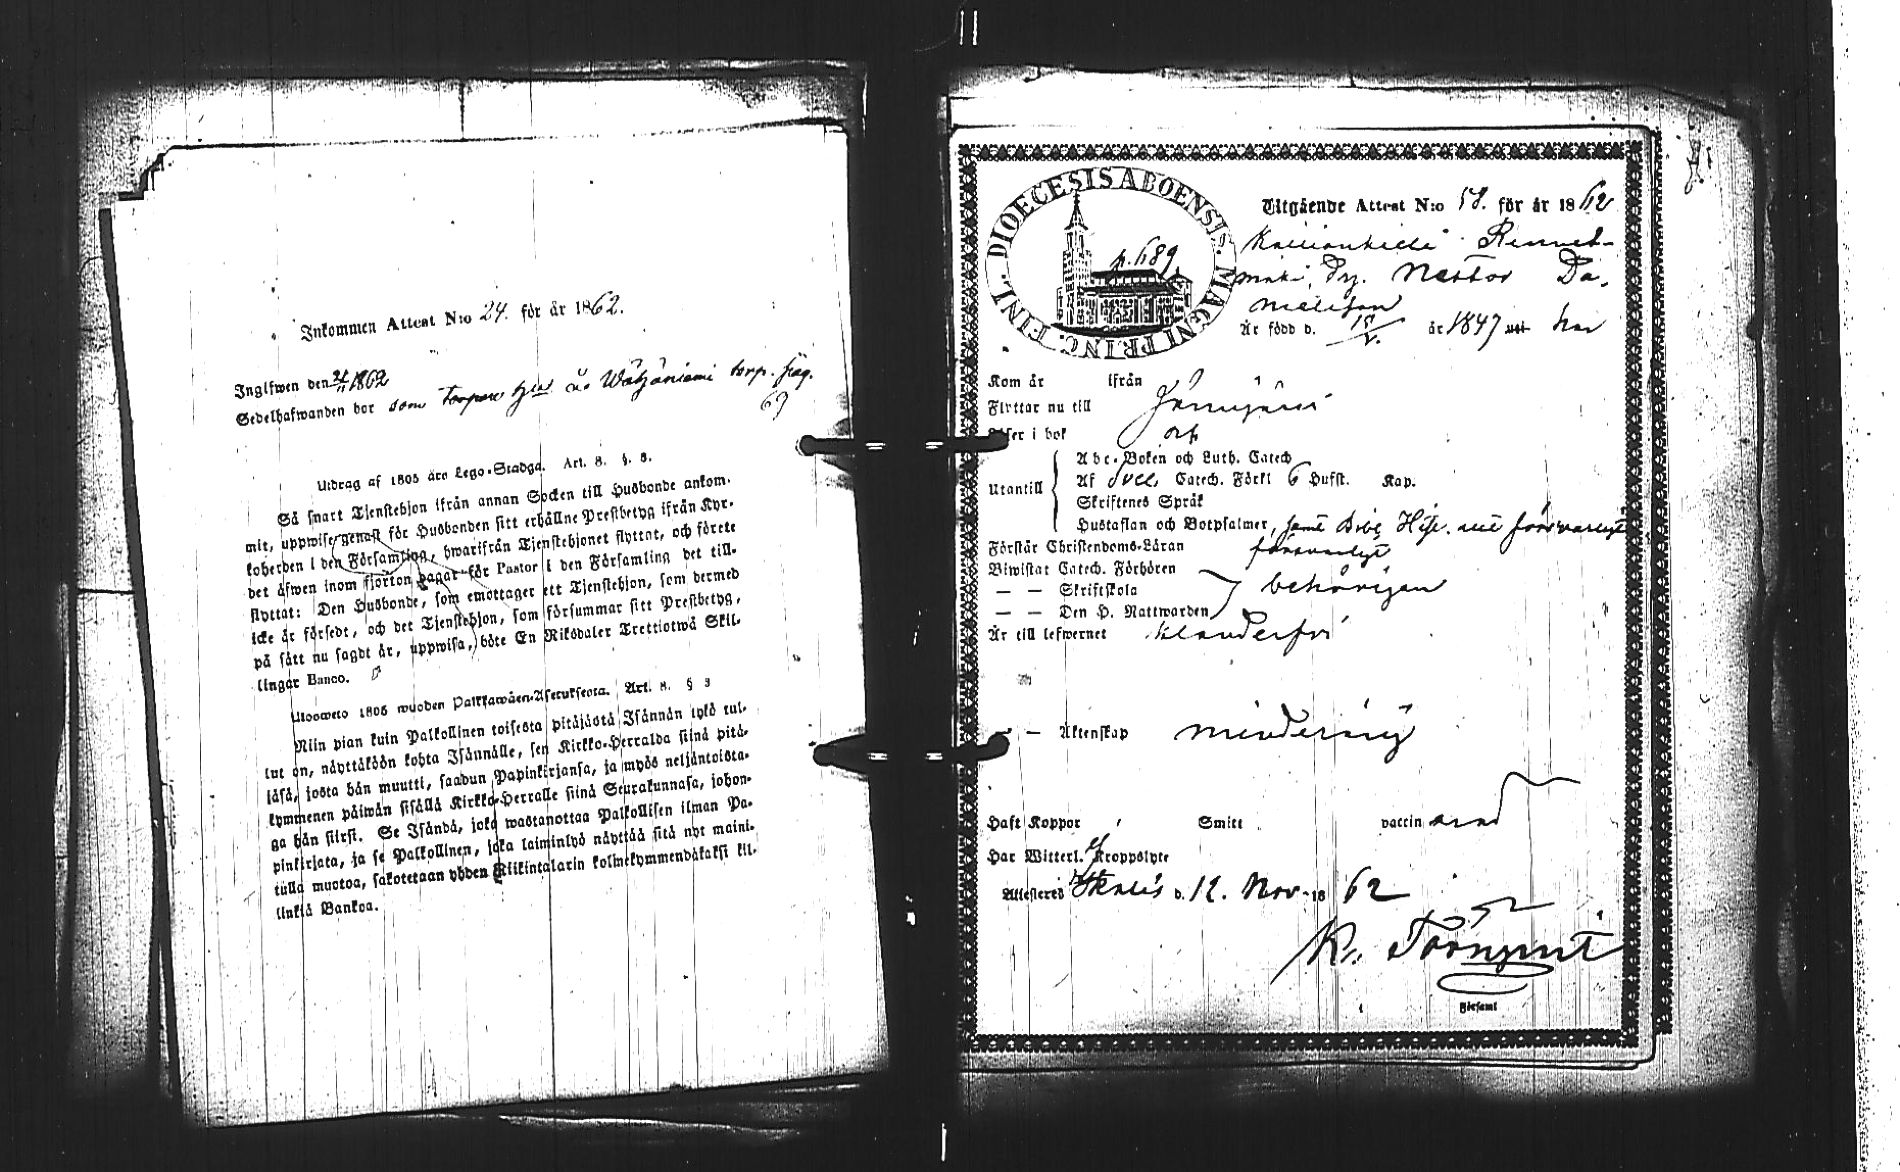 Inkommen Attest N:o 24. för år 1862.
Inglfwen den 21/11 1862
Sedelhafwanden bor som torpare å Wäljäniemi torp. pag.
69
Utdrag af 1805 års Lego-Stadga. Art. 8. §. 3.
Så snart Tjenstehjon ifrån annan Socken till Husbonde ankom-
mit, uppwise genast för Husbonden sitt erhållne Prestbetyg ifrån Kyr-
koherden i den Församling, hwarifrån Tjenstehjonet flyttat, och förete
det äfwen inom fjorton dagar för Pastor i den Församling det till-
flyttat: Den Husbonde, som emottager ett Tjenstehjon, som dermed
icke är försedt, och det Tjenstehjon, som försummar sitt Prestbetyg,
på sätt nu sagdt är, uppwisa, böte En Riksdaler Trettiotwå Skil-
lingar Banco.
Ulosweto 1805 wuoden Palkkawäen-Asetuksesta. Art. 8. § 3
Niin pian kuin Palkollinen toisesta pitäjästä Isännän tykö tul-
lut on, näyttäköön kohta Isännälle, sen Kirkko-Herralda siinä pitä-
jäsä, josta hän muutti, saadun Papinkirjansa, ja myös neljäntoista-
kymmenen päiwän sisällä Kirkko-Herralle siinä Seurakunnasa, johon-
ga hän siirsi. Se Isändä, joka wastanottaa Palkollisen ilman Pa-
pinkirjata, ja se Palkollinen, joka laiminlyö näyttää sitä nyt maini-
tulla muotoa, sakotetaan yhden Riikintalarin kolmekymmendäkaksi kil-
linkiä Bankoa.
DIOECESIS ABOENSIS. MAGNI PRINC. FINL.
p. 689
Utgående Attest N:o 58. för år 1862
Nestor Da-
nielsson
Är född d. år 1847 har
Kom år ifrån
Flyttar nu till Jämijärvi
Läser i bok
Utantill
Abc-Boken och Luth. Catech
Af Svel. Catech. Förkl 6 Hufst. Kap.
Skriftenes Språk
Hustaflan och Botpsalmer, samt Bibl. Hist. försvarligt
Förstår Christendoms-Läran försvarligt
Biwistat Catech. Förhören
— — Skriftskola behörigen
— — Den H. Nattwarden
Är till lefwernet klanderfri
— — Äktenskap minderårig
Haft Koppor Smitt vaccin
Har Witterl. Kroppslyte
Attesteras d. 12. Nov. 1862
K. Törnqvist